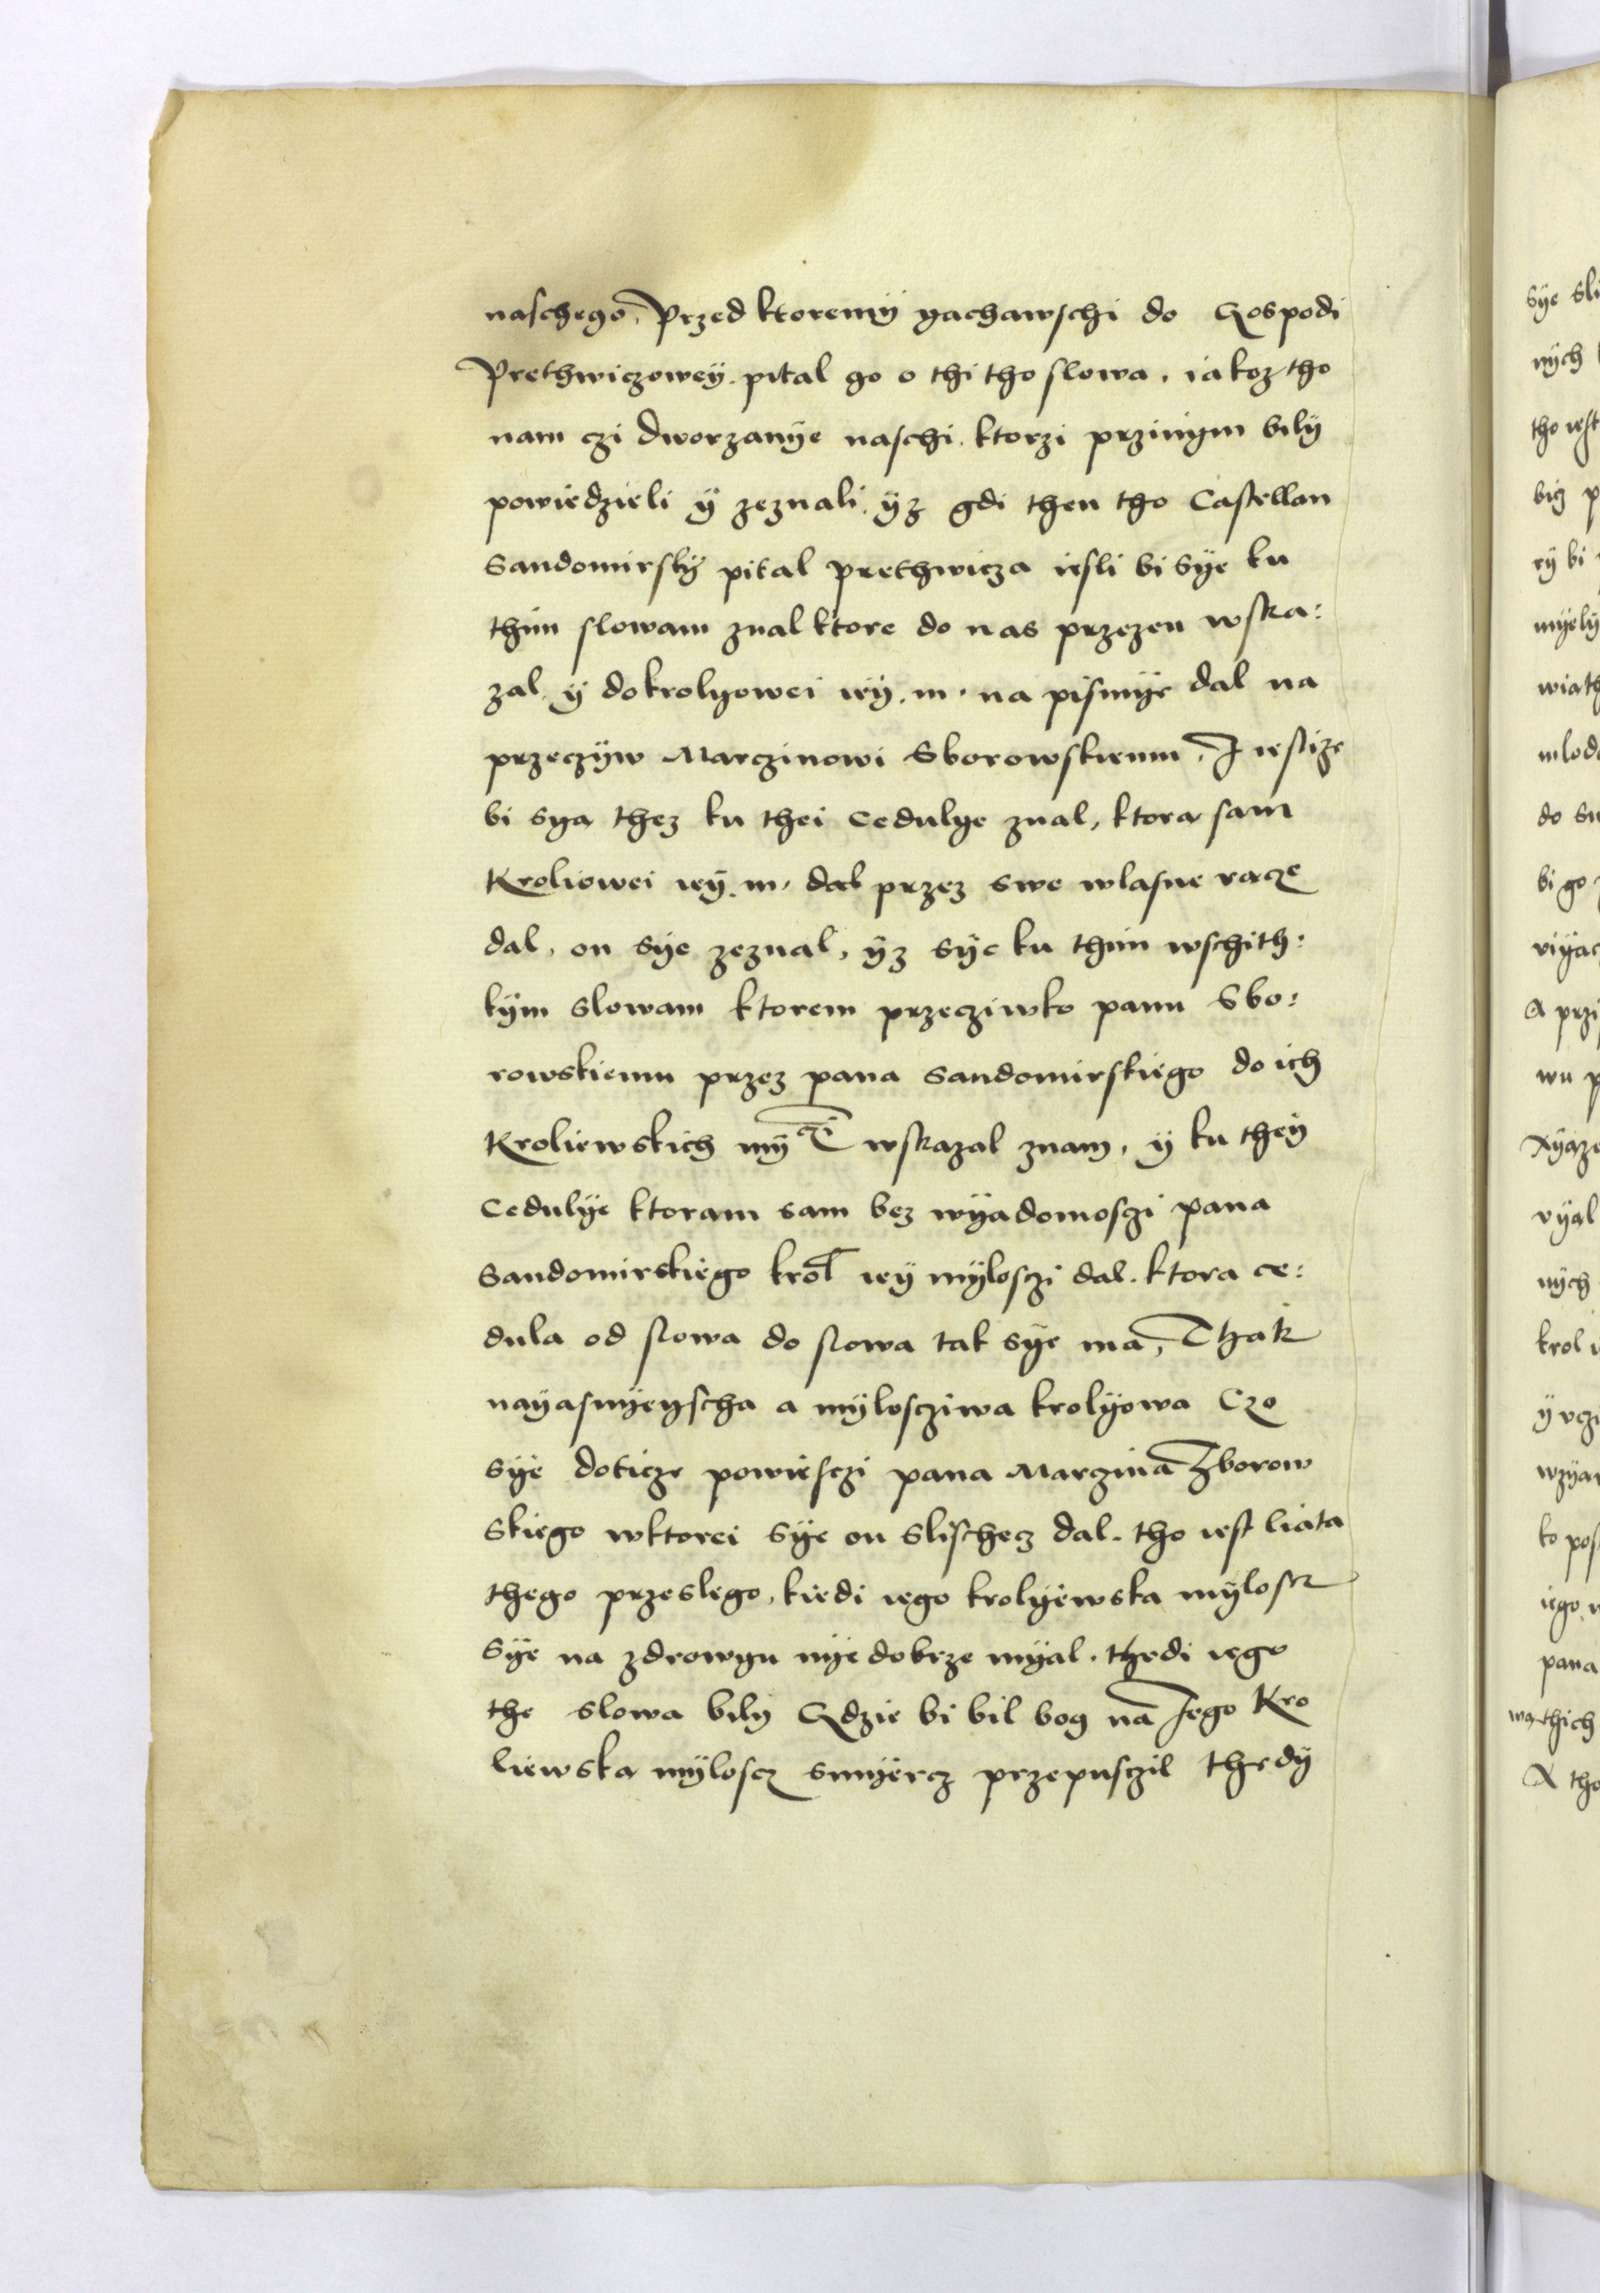 naschego, Przed ktoremÿ yachawschi do Gospodi
Prethwiczoweÿ. pital go o thi tho slowa, iakoz tho
nam czi dworzanÿe naschi. ktorzi przinÿm bilÿ
powiedzieli ÿ zeznali, ÿz gdi then tho Castellan
Sandomirskÿ pital prethwicza iesli bi sÿe ku
thim slowam znal ktore do nas przezen wska:
zal ÿ dokrolyowei ieÿ. m. na pismÿe dal na
przeczÿw Marczinowi Sborowskiemu, I iestize
bi sya thez ku thei Cedulye znal, ktora sam
Kroliowei ieÿ. m. dal przez swe wlasne racze
dal, on sÿe zeznal, ÿz sÿe ku thim wschith:
kÿm slowam ktorem przecziwko panu Sbo:
rowskiemu przez pana Sandomirskiego do ich
Kroliewskich mÿ czi wskazal znam, ÿ ku theÿ
Cedulÿe ktoram sam bez wÿadomosczi pana
Sandomirskiego krol ieÿ mÿlosczi dal. ktora ce:
dula od slowa do slowa tak sÿe ma, Thak
nayasnÿeyscha a mÿlosciwa krolÿowa Czo
sÿe doticze powiesczi pana Marczina Zborow
skiego wktorei sÿe on slischecz dal. tho iest liata
thego przeslego, kiedi iego krolÿewska mÿloscz
sÿe na zdrowyu nÿe dobrze mÿal. thedi iego
the slowa bilÿ Gdzie bi bil bog na Jego Kro
liewska mÿloscz smÿercz przepusczil thedÿ
sÿe sli
nÿch
tho iest
bicz p
rÿ bi
mÿelÿ
wiath
mlod
do su
bi go
A przi
wu p
vÿal
nÿch
krol i
ko pos
iego
pana
thich
A tho